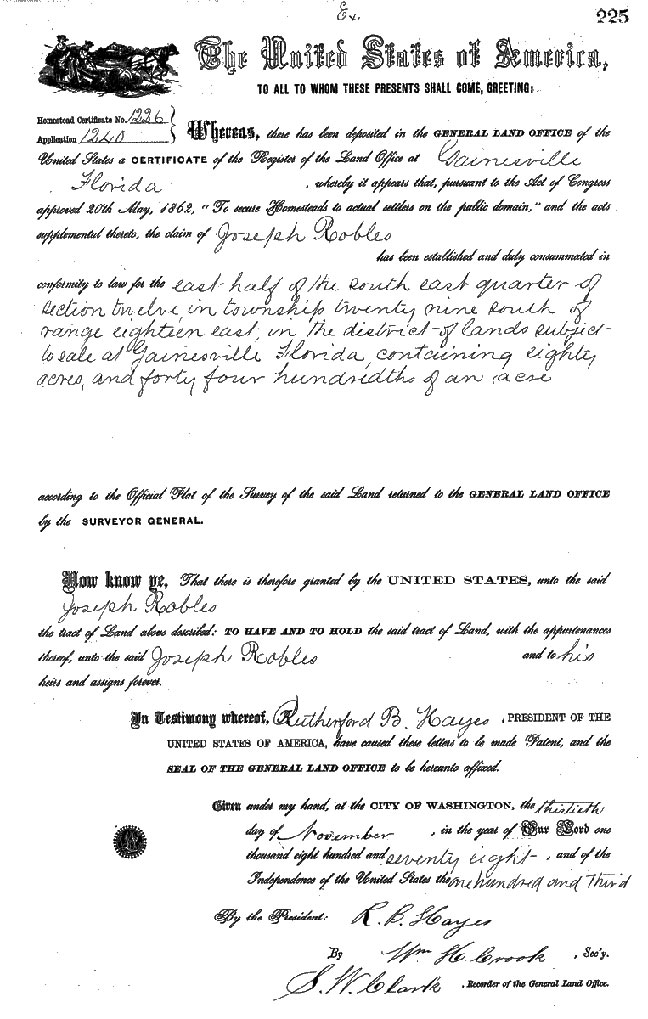 Ex.
225
The United States of America,
TO ALL TO WHOM THESE PRESENTS SHALL COME, GREETING:
Homestead Certificate No. 1226
Application 1240
Whereas, there has been deposited in the GENERAL LAND OFFICE of the
United States a CERTIFICATE of the Register of the Land Office at Gainesville
Florida , whereby it appears that, pursuant to the Act of Congress
approved 20th May, 1862, "To secure Homesteads to actual settlers on the public domain," and the acts
supplemental thereto, the claim of Joseph Robles
has been established and duly consummated in
conformity to law for the east half of the south east quarter of
section twelve, in township twenty nine south of
range eighteen east, in the district of lands subject
to sale at Gainesville Florida, containing eighty
acres, and forty four hundredths of an acre
according to the Official Plat of the Survey of the said Land returned to the GENERAL LAND OFFICE
by the SURVEYOR GENERAL.
Now know ye, That there is therefore granted by the UNITED STATES, unto the said
Joseph Robles
the tract of Land above described: TO HAVE AND TO HOLD the said tract of Land, with the appurtenances
thereof, unto the said Joseph Robles and to his
heirs and assigns forever.
In Testimony whereof, I, Rutherford B. Hayes , PRESIDENT OF THE
UNITED STATES OF AMERICA, have caused these letters to be made Patent, and the
SEAL OF THE GENERAL LAND OFFICE to be hereunto affixed.
Given under my hand, at the CITY OF WASHINGTON, the thirtieth
day of November , in the year of Our Lord one
thousand eight hundred and seventy eight , and of the
Independence of the United States the one hundred and third
By the President: R. B. Hayes
By Wm H. Crook , Sec'y.
S. W. Clark , Recorder of the General Land Office.